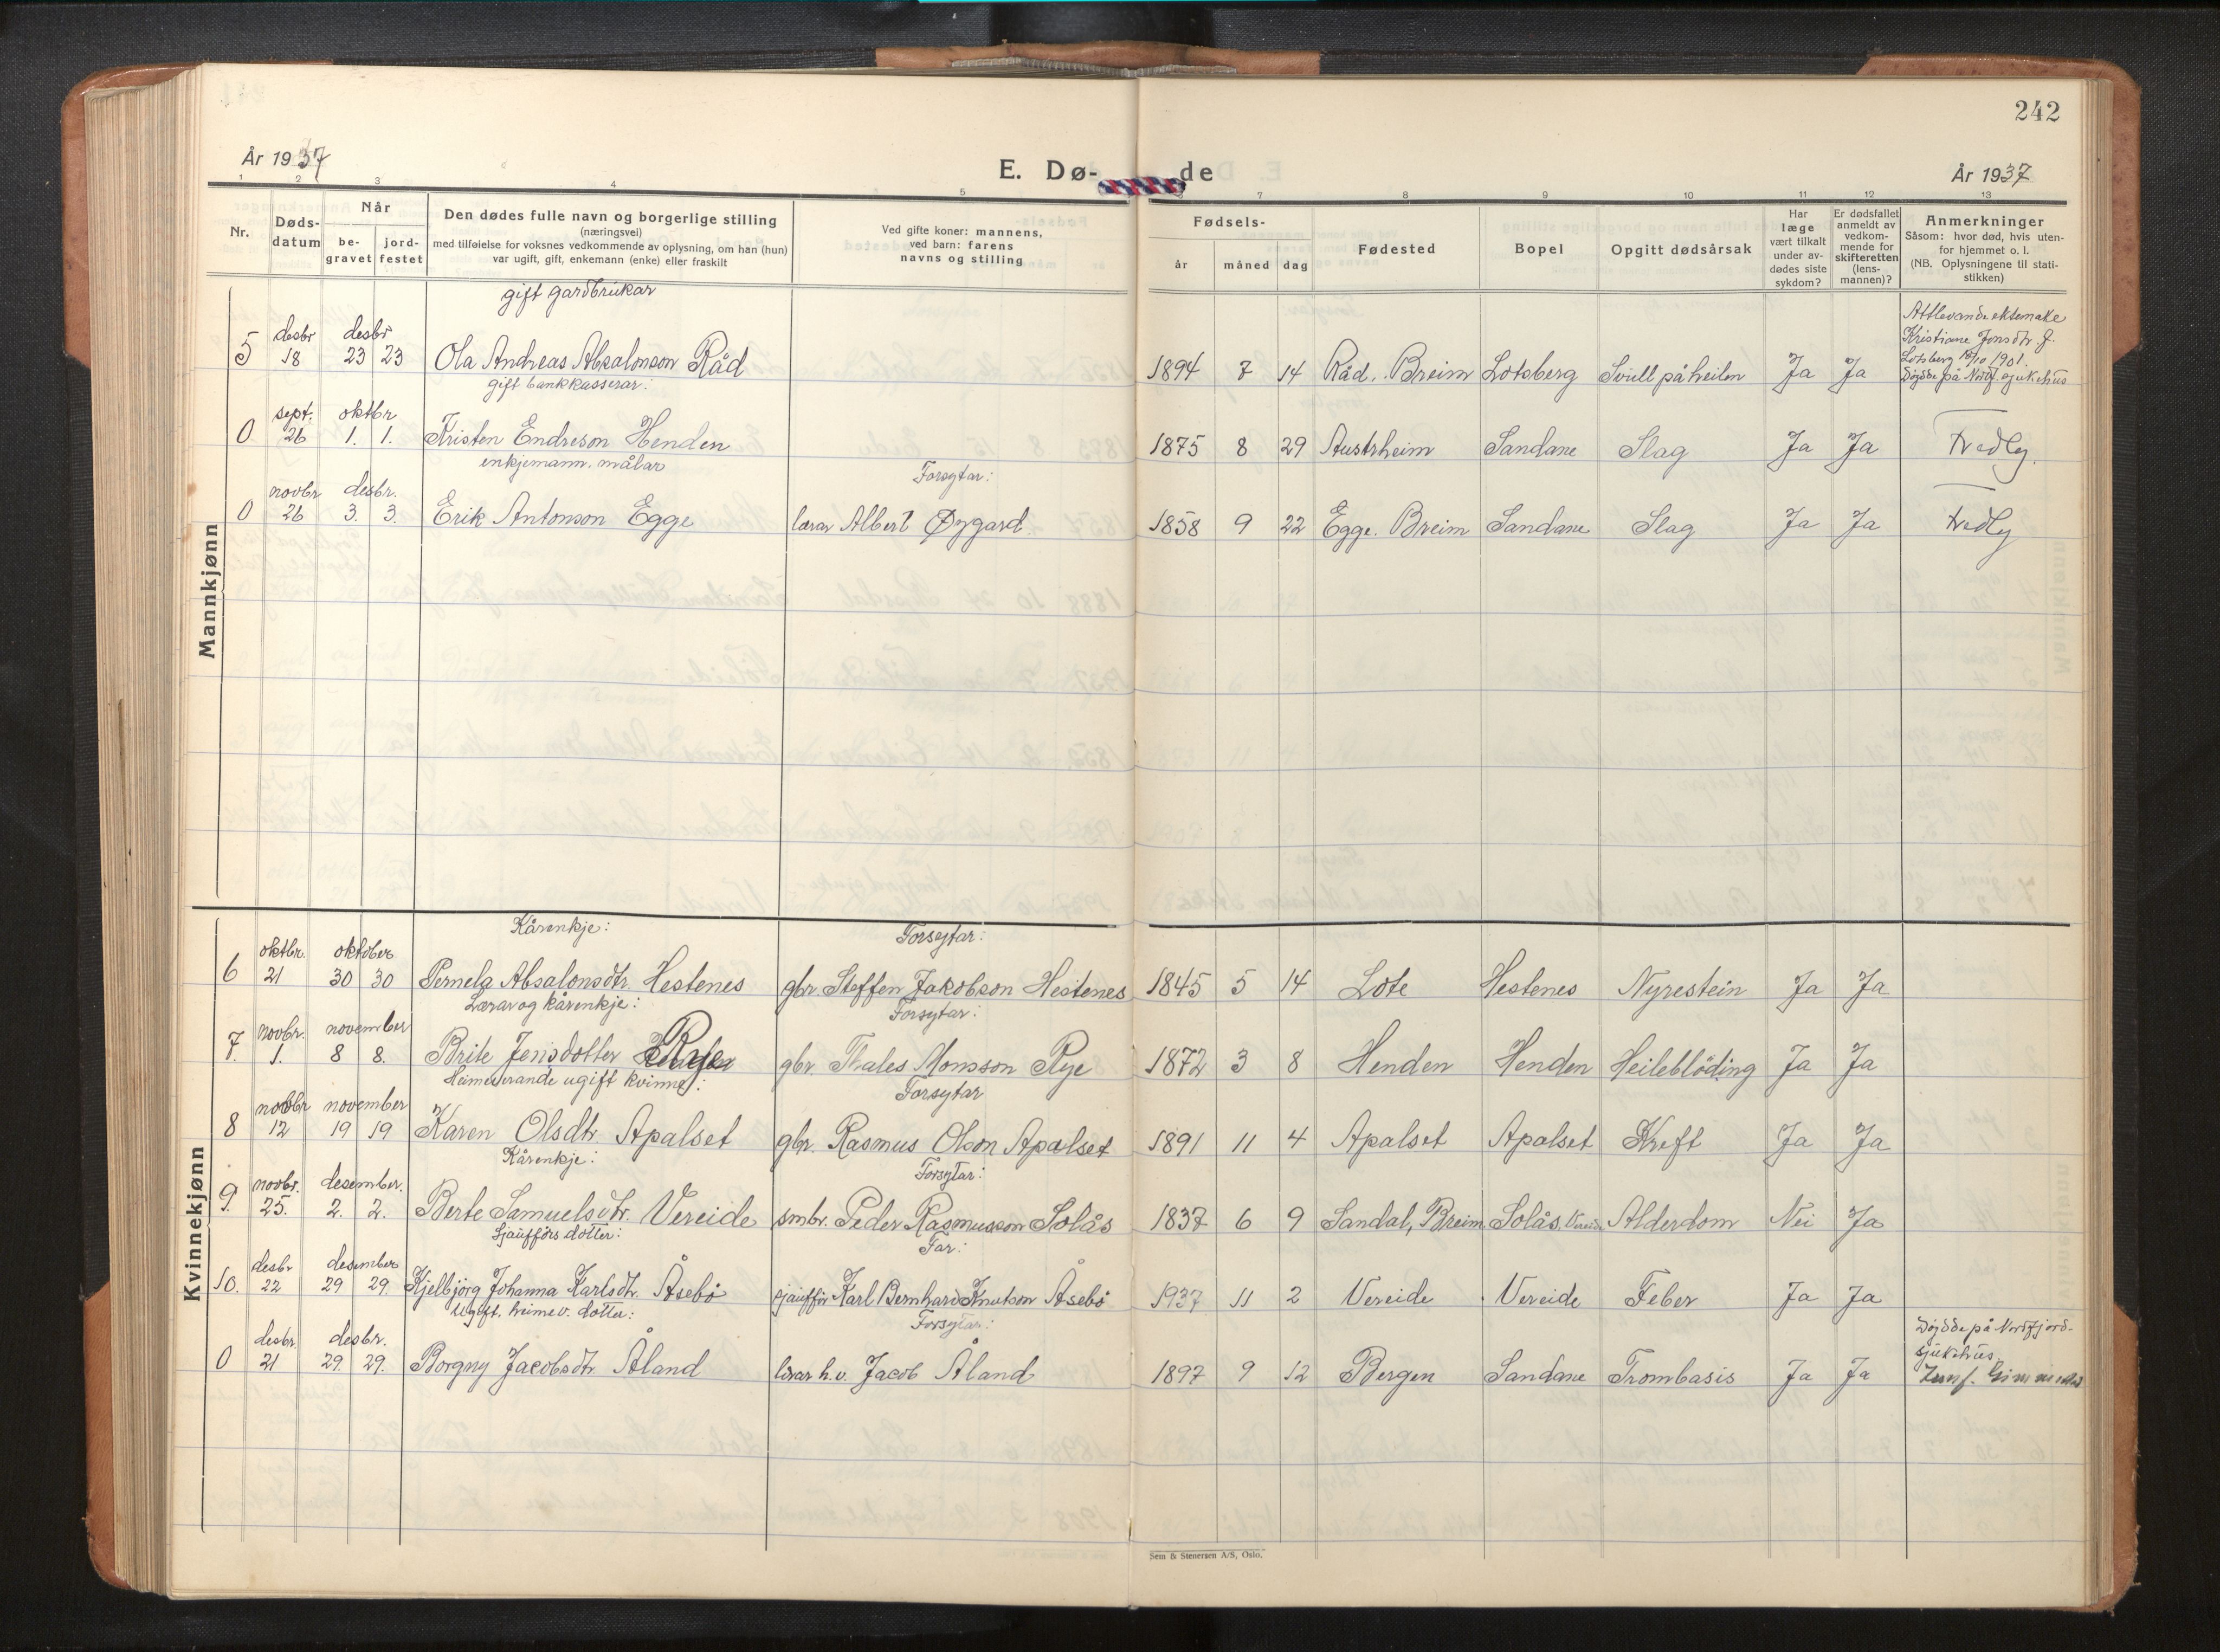 242
År 1937
E. Dø-
de
År 1937
1 2 3 4 5 7 8 9 10 11 12 13
Nr.
Døds-
datum
Når
be-
gravet
jord-
festet
Den dødes fulle navn og borgerlige stilling
(næringsvei)
med tilføielse for voksnes vedkommende av oplysning, om han (hun)
var ugift, gift, enkemann (enke) eller fraskilt
Ved gifte koner: mannens,
ved barn: farens
navns og stilling
Fødsels-
år
måned
dag
Fødested
Bopel
Opgitt dødsårsak
Har
læge
vært tilkalt
under av-
dødes siste
sykdom?
Er dødsfallet
anmeldt av
vedkom-
mende for
skifteretten
(lens-
mannen)?
Anmerkninger
Såsom: hvor død, hvis uten-
for hjemmet o. l.
(NB. Oplysningene til stati-
stikken)
Mannkjønn
gift gardbrukar
desbr desbr
5 18 23 23 Ola Andreas Absalonson Råd 1894 7 14 Råd. Breim Lotsberg Svull på heilen Ja Ja
Attlevande ektemake
Kristiane Jonsdtr. f.
Lotsberg 18/10 1901.
Døydde på Nordf. sjukehus
gift bankkasserar:
sept. oktbr
0 26 1. 1. Kristen Endreson Henden 1875 8 29 Austrheim Sandane Slag Ja Ja
enkjemann, målar
Forsytar:
novbr desbr.
0 26 3. 3. Erik Antonson Egge lærar Albert Øygard 1858 9 22 Egge. Breim Sandane Slag Ja Ja
Kvinnekjønn
Kårenkje:
Forsytar:
oktbr. oktober
6 21 30 30 Pernela Absalonsdtr. Hestenes gbr. Steffen Jakobson Hestenes 1845 5 14 Lote Hestenes Nyrestein Ja Ja
Lærar og kårenkje:
Forsytar:
novbr. november
7. 1. 8 8. Brite Jensdotter Rye gbr. Thales Monsson Rye 1872 3 8 Henden Henden Heileblöding Ja Ja
Heimeverande ugift kvinne:
Forsytar
novbr november
8 12 19 19 Karen Olsdtr Apalset gbr. Rasmus Olson Apalset 1891 11 4 Apalset Apalset Kreft Ja Ja
Kårenkje:
Forsytar:
novbr. desember.
9. 25. 2. 2. Berte Samuelsdtr. Vereide smbr. Peder Rasmusson Solås 1837 6 9 Sandal, Breim Solås, Vereide Alderdom Nei Ja
Sjåufførs dotter:
Far:
desbr desember
10. 22 29 29. Kjelbjörg Johanna Karlsdtr. Åsebö sjåufför Karl Bernhard Knutson Åsebö 1937 11 2 Vereide Vereide Feber Ja Ja
Ugift, heimev. dotter:
Forsytar:
desbr. desbr.
0 21 29. 29. Borgny Jacobsdtr. Åland lærar h.v. Jacob Åland 1897 9 12 Bergen Sandane Trombasis Ja Ja
Døydde på Nordfjord-
sjukehus
Sem & Stenersen A/S, Oslo.